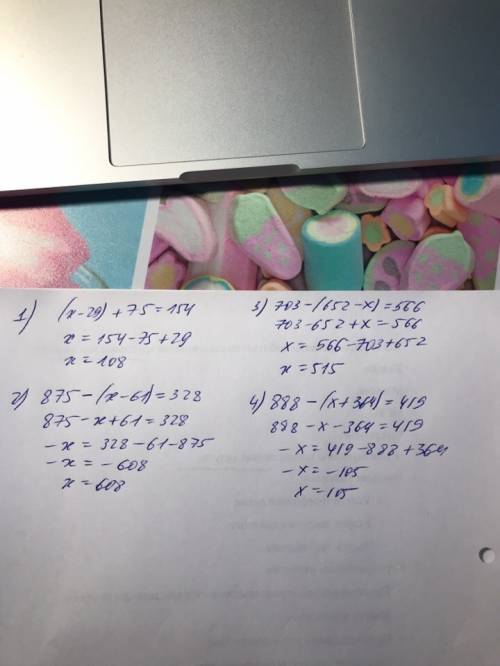 1) (x-29)+75=154
x = 154-75+29
x = 108
2) 875-(x-61)=328
875-x+61=328
-x = 328-61-875
-x = -608
x = 608
3) 703-(652-x)=566
703-652+x=566
x = 566-703+652
x = 515
4) 888-(x+364)=419
888-x-364=419
-x=419-888+364
-x=-105
x=105